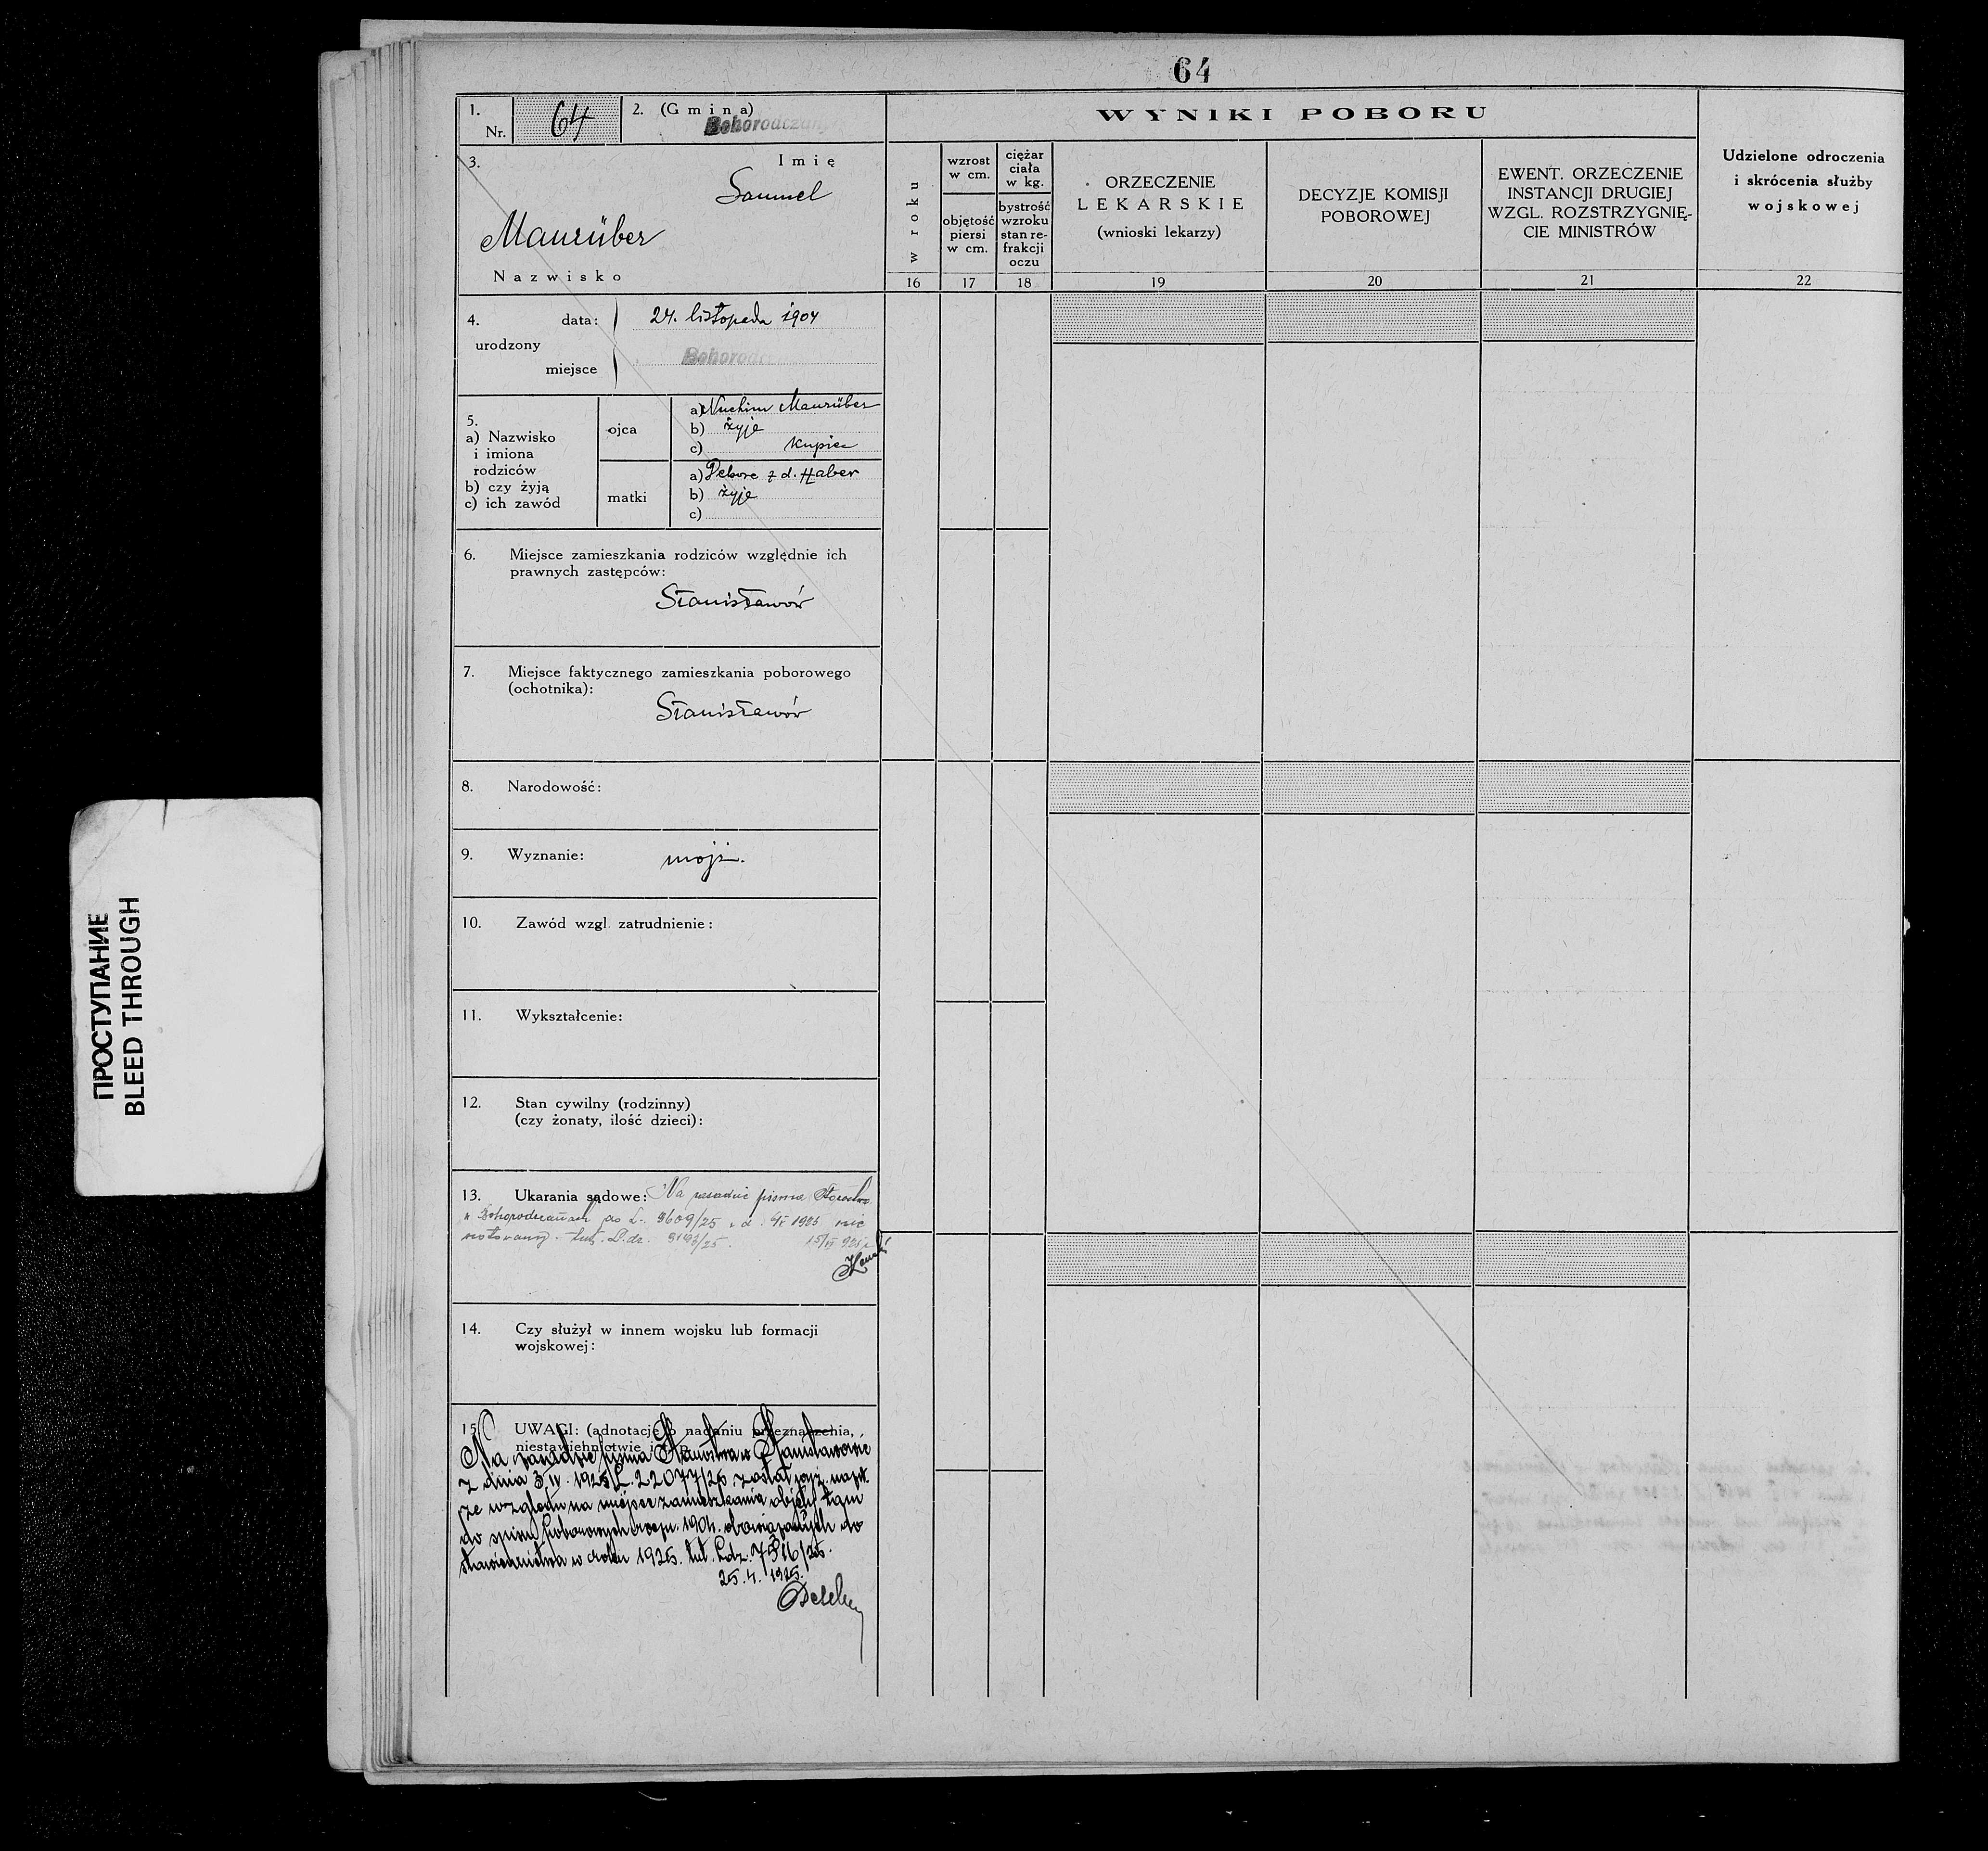 64
1.
Nr. 64
2. (Gmina)
Bohorodczany
3. Imię
Samuel
Maurüber
Nazwisko
WYNIKI POBORU
w roku
wzrost w cm.
objętość piersi w cm.
ciężar ciała w kg.
bystrość wzroku stan re-frakcji oczu
ORZECZENIE
LEKARSKIE
(wnioski lekarzy)
DECYZJE KOMISJI
POBOROWEJ
EWENT. ORZECZENIE
INSTANCJI DRUGIEJ
WZGL. ROZSTRZYGNIĘ-
CIE MINISTRÓW
Udzielone odroczenia
i skrócenia służby
wojskowej
16 17 18 19 20 21 22
4. data: 24. listopada 1904
urodzony
miejsce Bohorodczany
5.
a) Nazwisko
i imiona
rodziców
b) czy żyją
c) ich zawód
ojca
a) Nuchim Maurüber
b) żyje
c) kupiec
matki
a) Debore z d. Haber
b) żyje
c)
6. Miejsce zamieszkania rodziców względnie ich
prawnych zastępców:
Stanisławów
7. Miejsce faktycznego zamieszkania poborowego
(ochotnika):
Stanisławów
8. Narodowość:
9. Wyznanie: mojż.
10. Zawód wzgl. zatrudnienie:
11. Wykształcenie:
12. Stan cywilny (rodzinny)
(czy żonaty, ilość dzieci):
13. Ukarania sądowe: Na zasadzie pisma Starostwa
w Bohorodczanach do L. 3609/25 z d. 1925 nie
notowany. tut. L.dz. 15/ 925
14. Czy służył w innem wojsku lub formacji
wojskowej:
15. UWAGI: (adnotacje o nadaniu przeznaczenia,
niestawiennictwie i t. p.
Na zasadzie pisma Starostwa w Stanisławowie
z dnia 3.IV. 1925 L. 22077/25 został wyż. wspt.
ze względu na miejsce zamieszkania objęty tam
do spisu poborowych roczn. 1904. obowiązanych do
stawiennictwa w roku 1925. tut. L.dz. 7516/25.
25.4. 1925.
ПРОСТУПАНИЕ
BLEED THROUGH